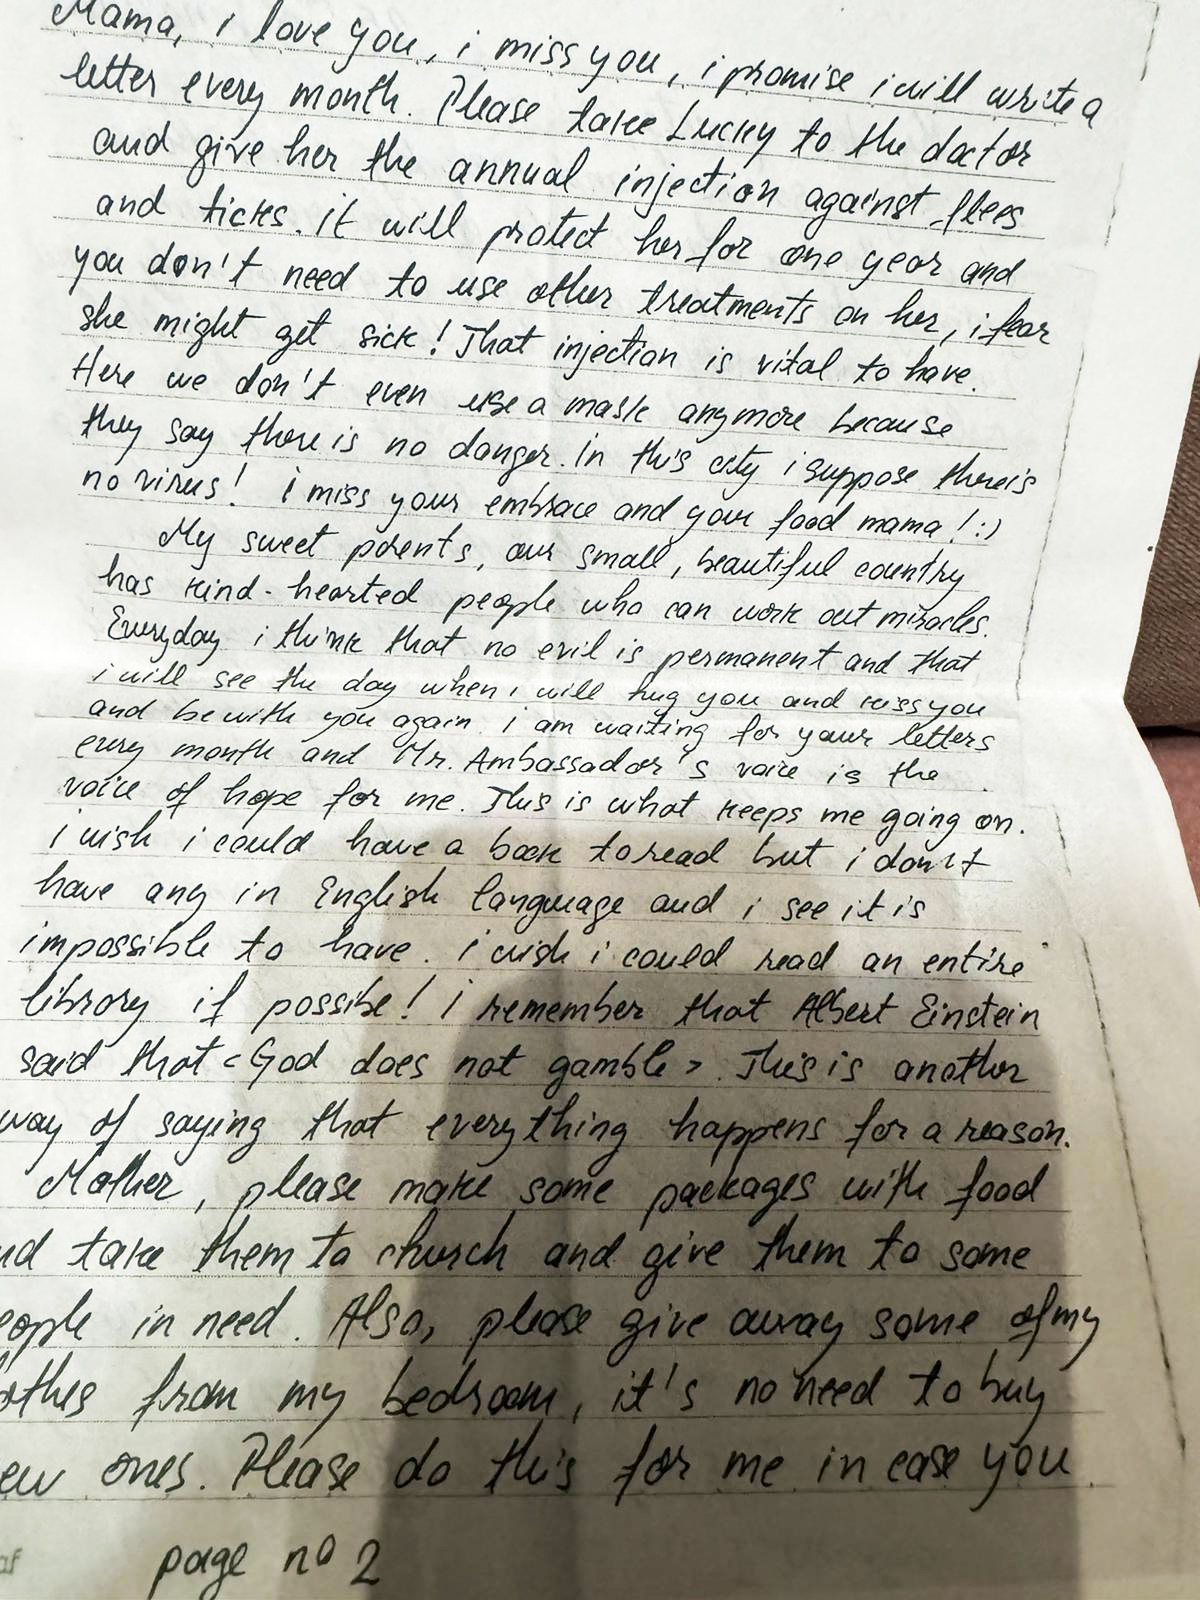 Mama, i love you, i miss you, i promise i will write a
letter every month. Please take Lucky to the doctor
and give her the annual injection against flees
and ticks. it will protect her for one year and
you don't need to use other treatments on her, i fear
she might get sick! That injection is vital to have.
Here we don't even use a mask anymore because
they say there is no danger. In this city i suppose there's
no virus! i miss your embrace and your food mama! :)
My sweet parents, our small, beautiful country
has kind-hearted people who can work out miracles.
Everyday i think that no evil is permanent and that
i will see the day when i will hug you and kiss you
and be with you again. i am waiting for your letters
every month and Mr. Ambassador's voice is the
voice of hope for me. This is what keeps me going on.
i wish i could have a book to read but i don't
have any in English language and i see it is
impossible to have. i wish i could read an entire
library if possibe! i remember that Albert Einstein
said that <God does not gamble>. This is another
way of saying that everything happens for a reason.
Mother, please make some packages with food
nd take them to church and give them to some
eople in need. Also, please give away some of my
othes from my bedroom, it's no need to buy
ew ones. Please do this for me in case you
af
page no 2